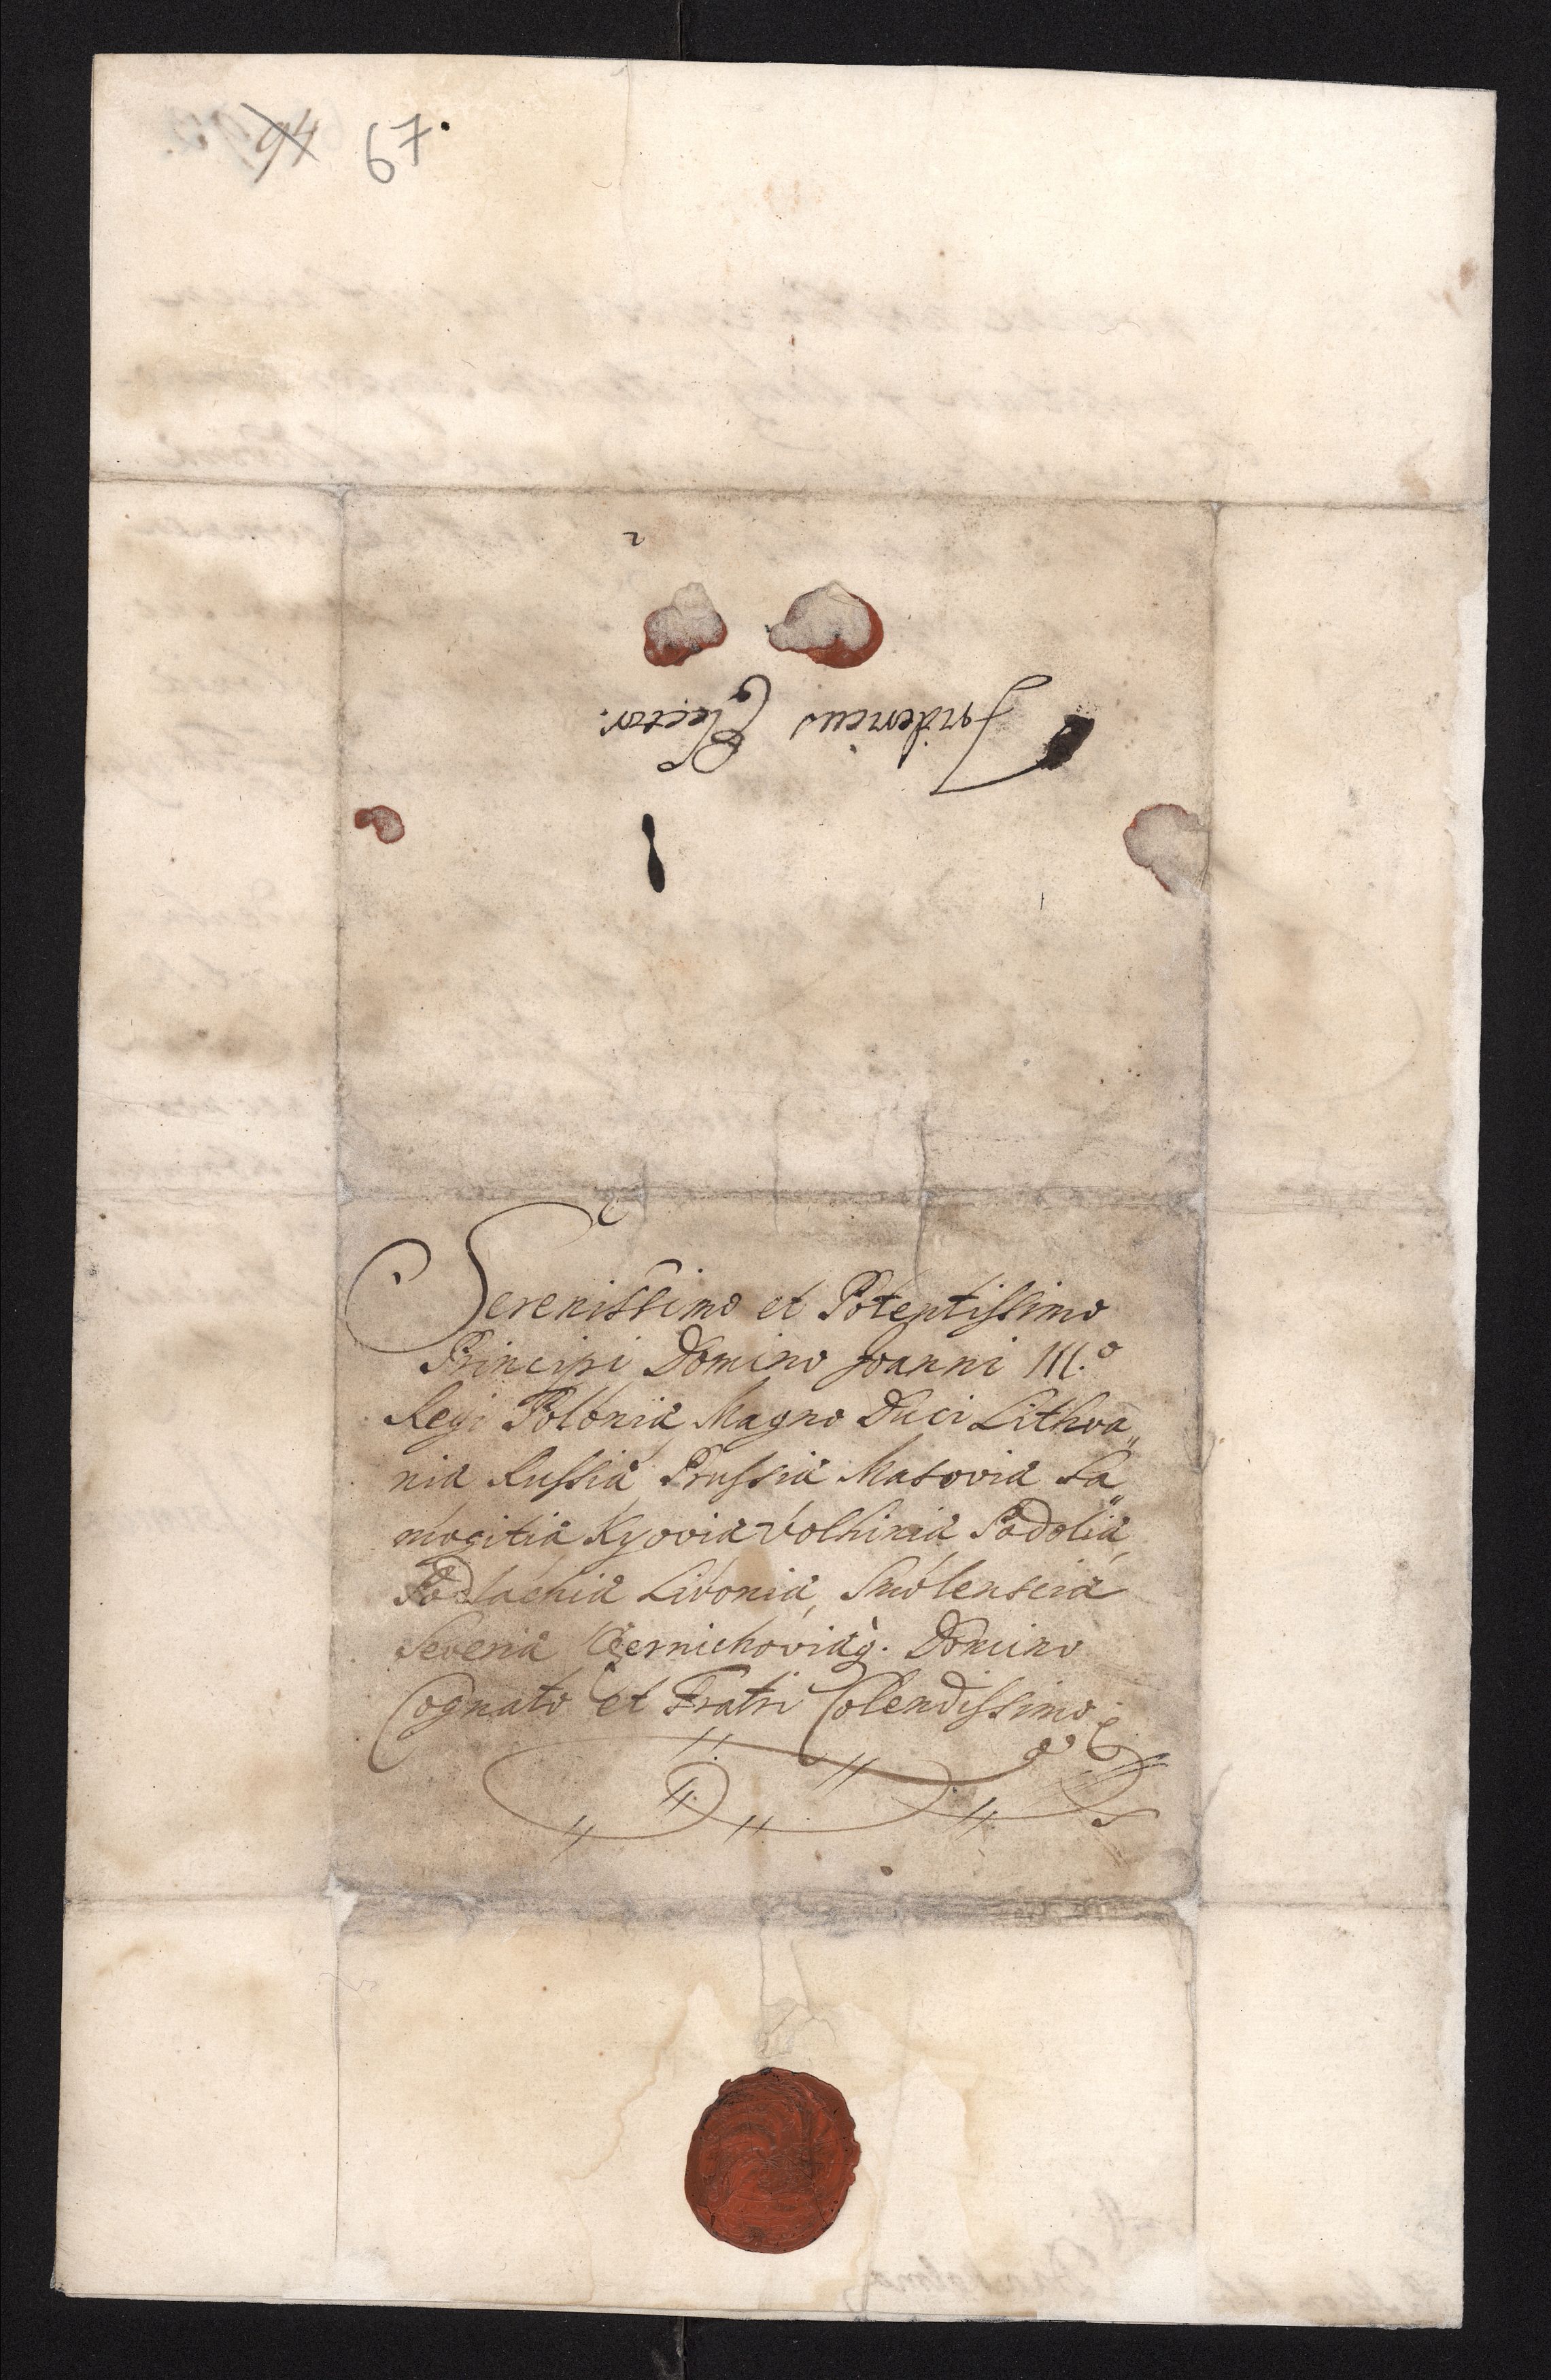 94 67.
Fridericus Elector.
Serenissimo et Potentissimo
Principi Domino Joanni III.o
Regi Poloniæ, Magno Duci Lithva„
niæ Russiæ Prussiæ Masoviæ Sa„
mogitiæ Kyoviæ Volhiniæ Podoliæ,
Podlachiæ Livoniæ, Smolensciæ
Severiæ Czernichoviæq. Domino
Cognato et Fratri Colendissimo.